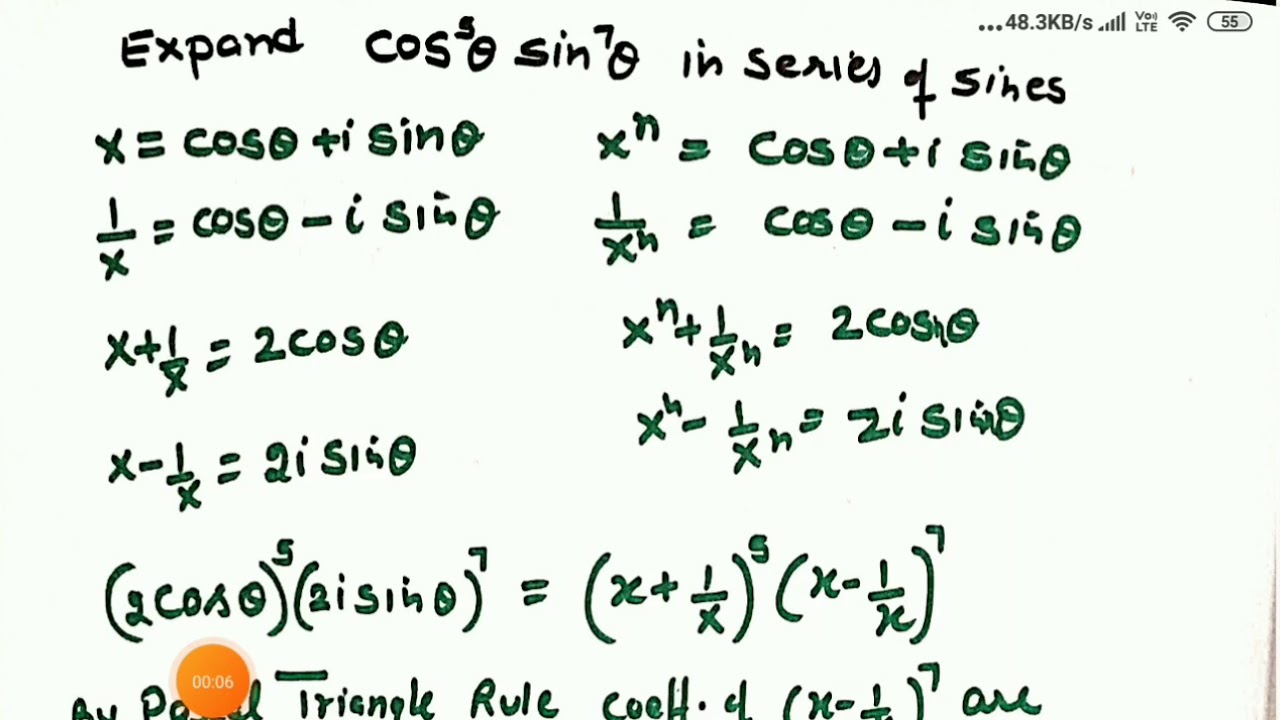 ...48.3KB/s Vo) LTE 55
Expand cos⁵θ sin⁷θ in series of sines
x = cosθ + i sinθ xⁿ = cosθ + i sinθ
1/x = cosθ - i sinθ 1/xⁿ = cosθ - i sinθ
x + 1/x = 2cosθ xⁿ + 1/xⁿ = 2cosnθ
x - 1/x = 2i sinθ xⁿ - 1/xⁿ = 2i sinθ
(2cosθ)⁵(2i sinθ)⁷ = (x + 1/x)⁵ (x - 1/x)⁷
00:06
By Triangle Rule coeff. of (x - 1/x)⁷ are